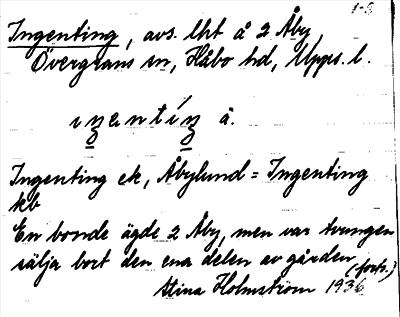 1-3.
Ingenting, avs. lht å 2 Åby,
Övergrans sn, Håbo hd, Upps. l.
å.
Ingenting ek, Åbylund = Ingenting
kb
En bonde ägde 2 Åby, men var tvungen
sälja bort den ena delen av gården
(forts.)
Stina Holmström 1936